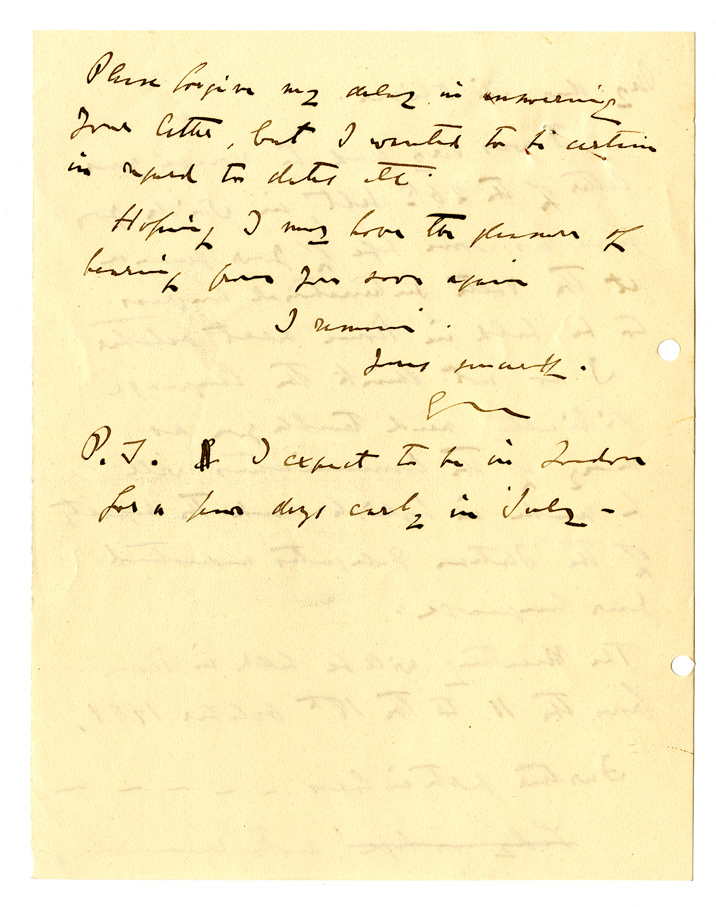 Please forgive my delay in answering
your letter, but I wanted to be certain
in regard to dates etc.
Hoping I may have the pleasure of
hearing from you soon again
I remain.
Yours sincerely.
P. S. I expect to be in London
for a few days early in July —